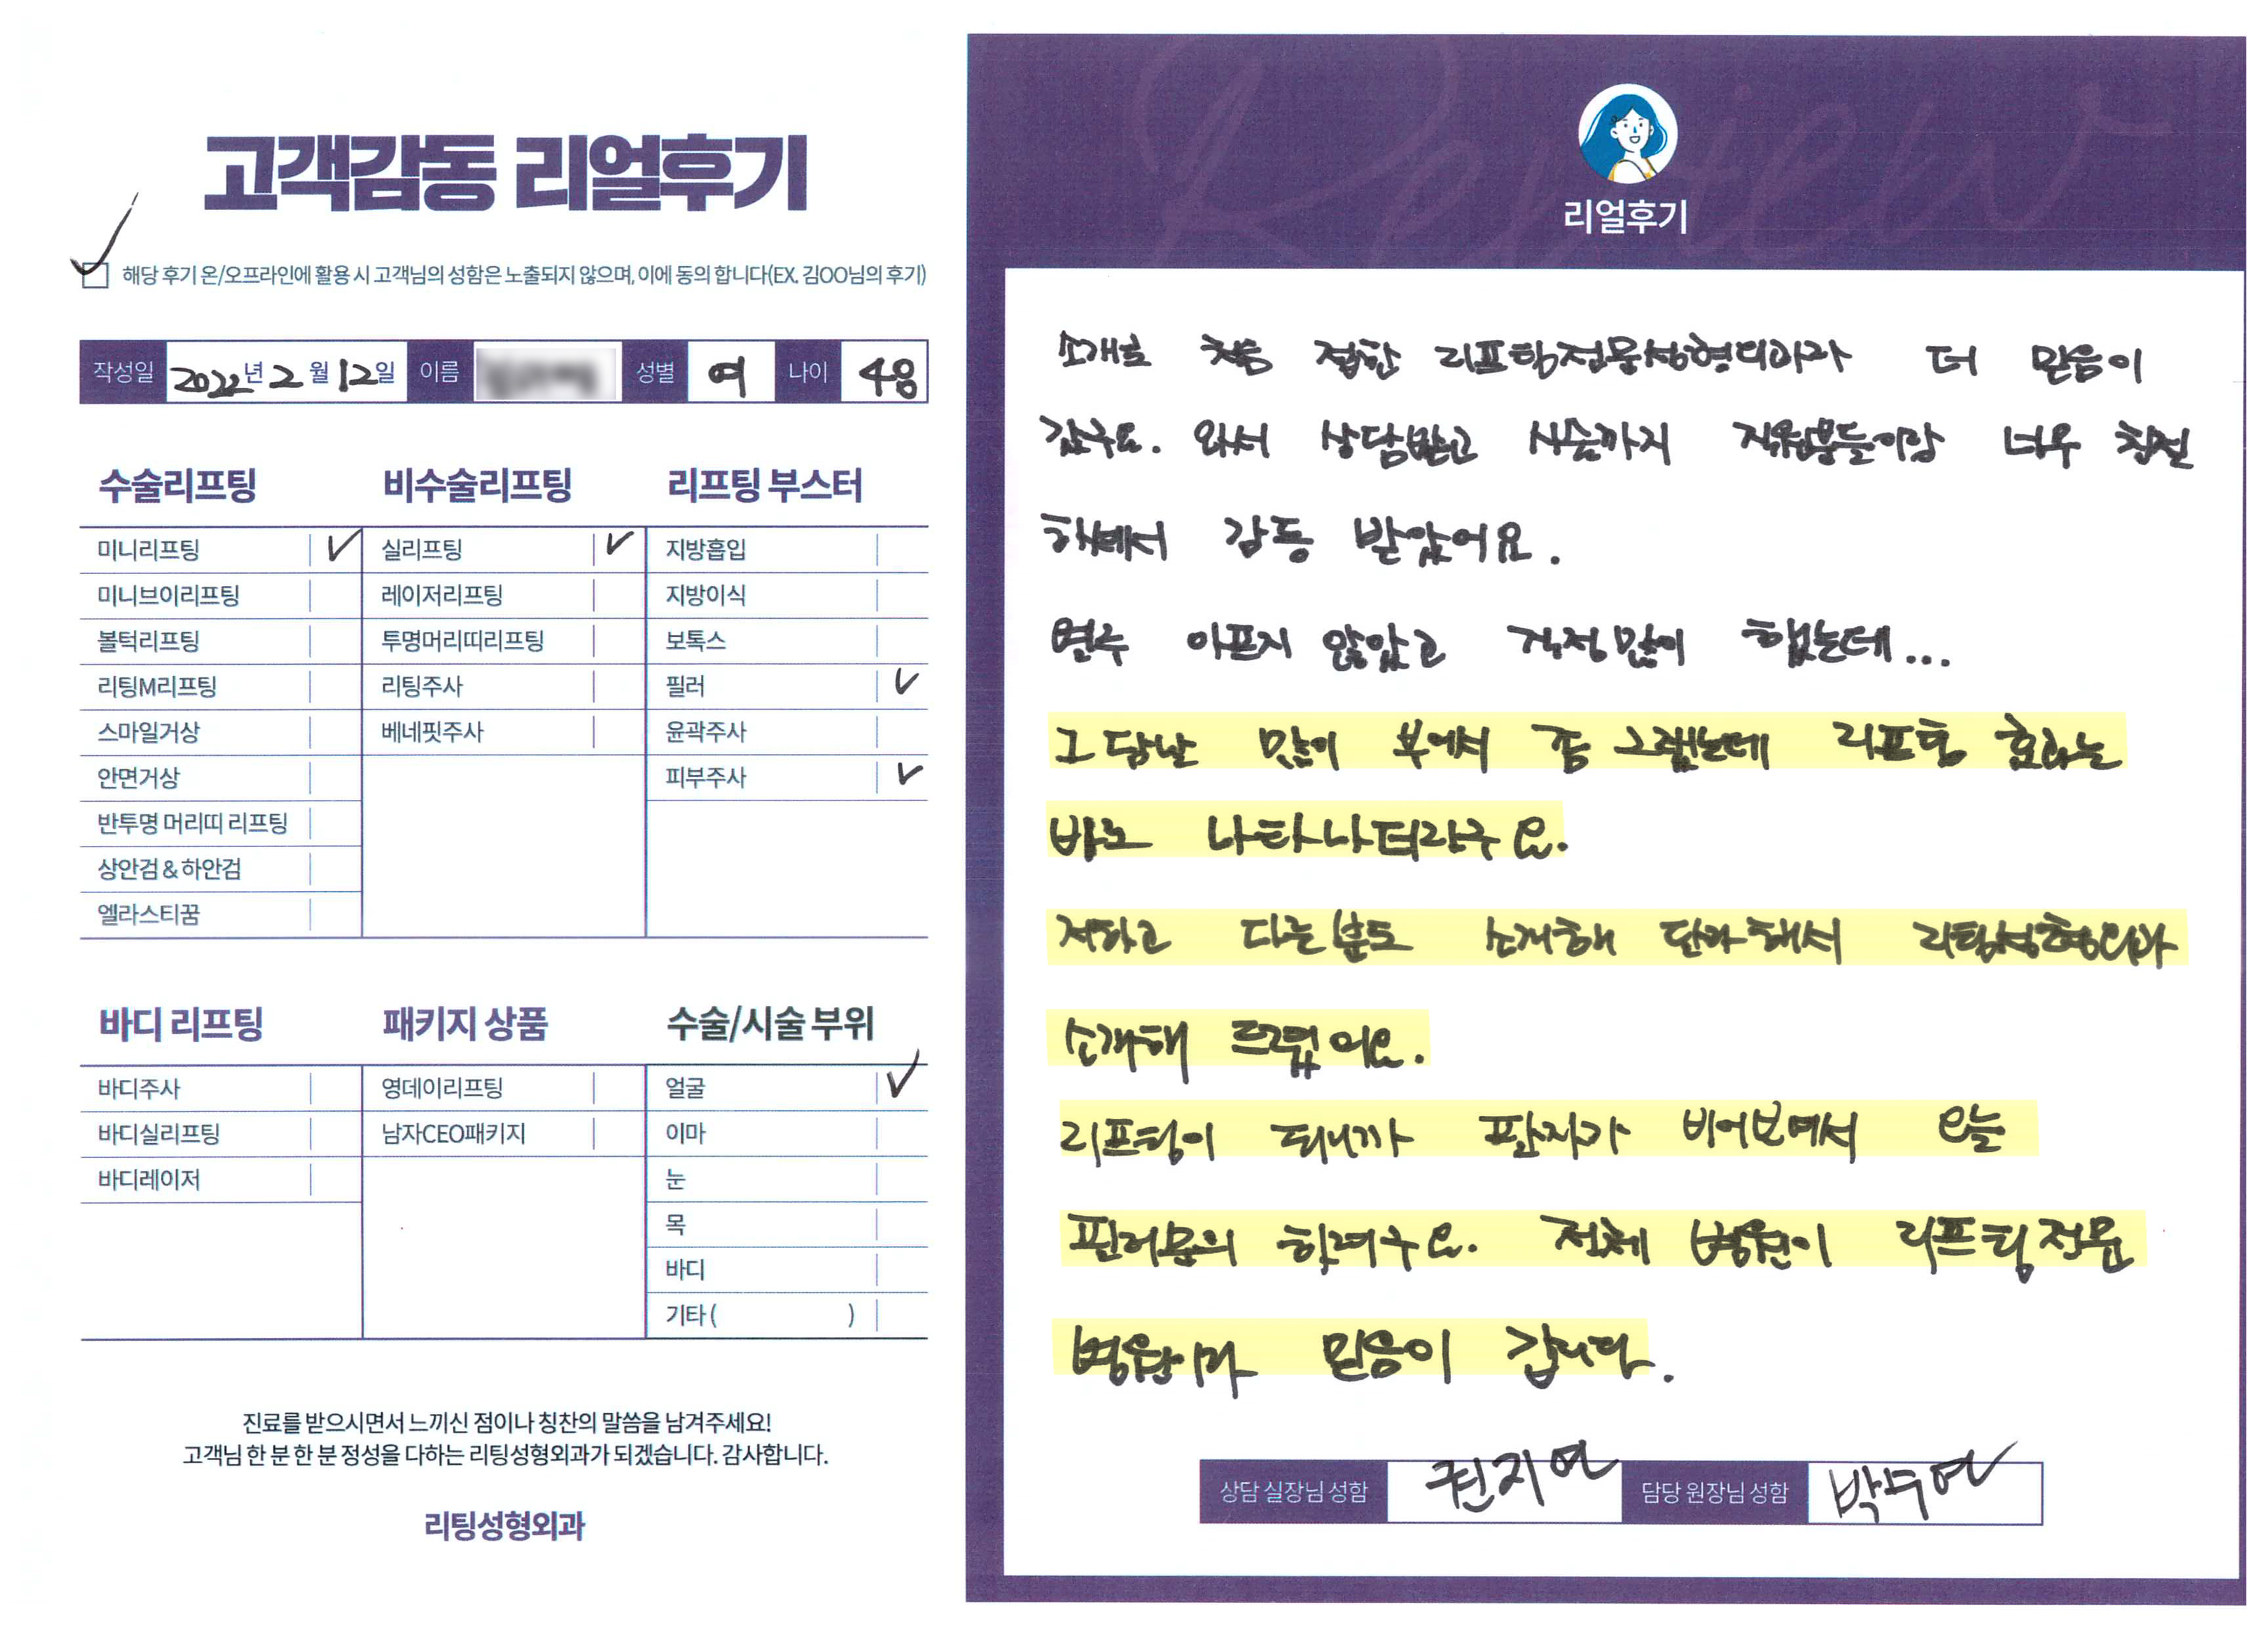 고객감동 리얼후기
해당 후기 온/오프라인에 활용 시 고객님의 성함은 노출되지 않으며, 이에 동의 합니다(EX. 김OO님의 후기)
작성일 2022년 2월 12일 이름 성별 여 나이 48
수술리프팅 비수술리프팅 리프팅 부스터
미니리프팅 ✓ 실리프팅 ✓ 지방흡입
미니브이리프팅 레이저리프팅 지방이식
볼턱리프팅 투명머리띠리프팅 보톡스
리팅M리프팅 리팅주사 필러 ✓
스마일거상 베네핏주사 윤곽주사
안면거상 피부주사 ✓
반투명 머리띠 리프팅
상안검 & 하안검
엘라스티꿈
바디 리프팅 패키지 상품 수술/시술 부위
바디주사 영데이리프팅 얼굴 ✓
바디실리프팅 남자CEO패키지 이마
바디레이저 눈
목
바디
기타 ( )
진료를 받으시면서 느끼신 점이나 칭찬의 말씀을 남겨주세요!
고객님 한 분 한 분 정성을 다하는 리팅성형외과가 되겠습니다. 감사합니다.
리팅성형외과
Review
리얼후기
소개로 처음 접한 리프팅전문성형외과라 더 믿음이
갔구요. 와서 상담받고 시술까지 직원분들이랑 너무 친절
하셔서 감동 받았어요.
별루 아프지 않았고 걱정많이 했는데...
그 담날 많이 부어서 좀 그랬는데 리프팅 효과는
바로 나타나더라구요.
저하고 다른분도 소개해 달라해서 리팅성형외과
소개해 드렸어요.
리프팅이 되니까 팔자가 비어보여서 오늘
필러문의 하려구요. 전체 병원이 리프팅전문
병원이라 믿음이 갑니다.
상담 실장님 성함 권지연 담당 원장님 성함